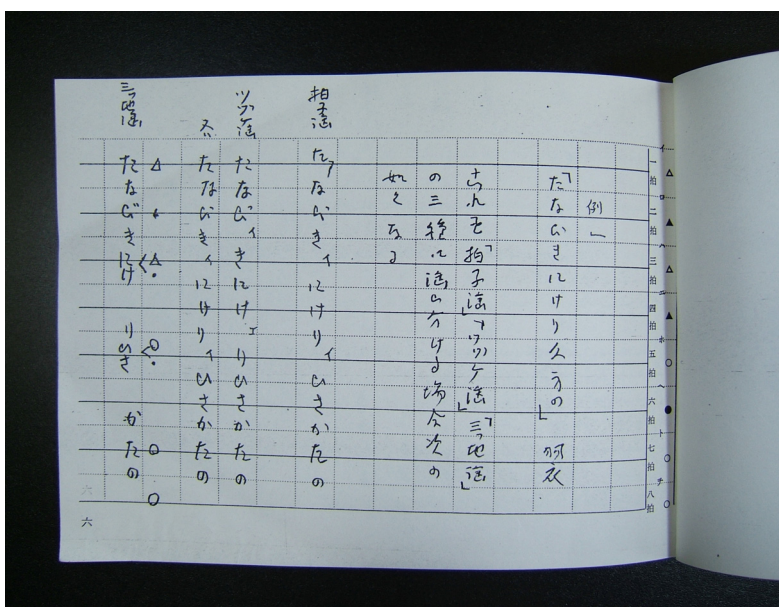 イ ロ ハ ニ ホ ヘ ト チ
一拍 二拍 三拍 四拍 五拍 六拍 七拍 八拍
例」
「たなびきにけり久方の」 羽衣
これを「拍子謡」「ツヅケ謡」「三ツ地謡」
の三種に謡ひ分ける場合次の
如くなる
拍子謡 たなびきイにけりイひさかたの
ツヅケ謡 たなびイきにけエりひさかたの
又 たなびきイにけりイひさかたの
三ツ地謡 たなびきにけ りひさ かたの
六